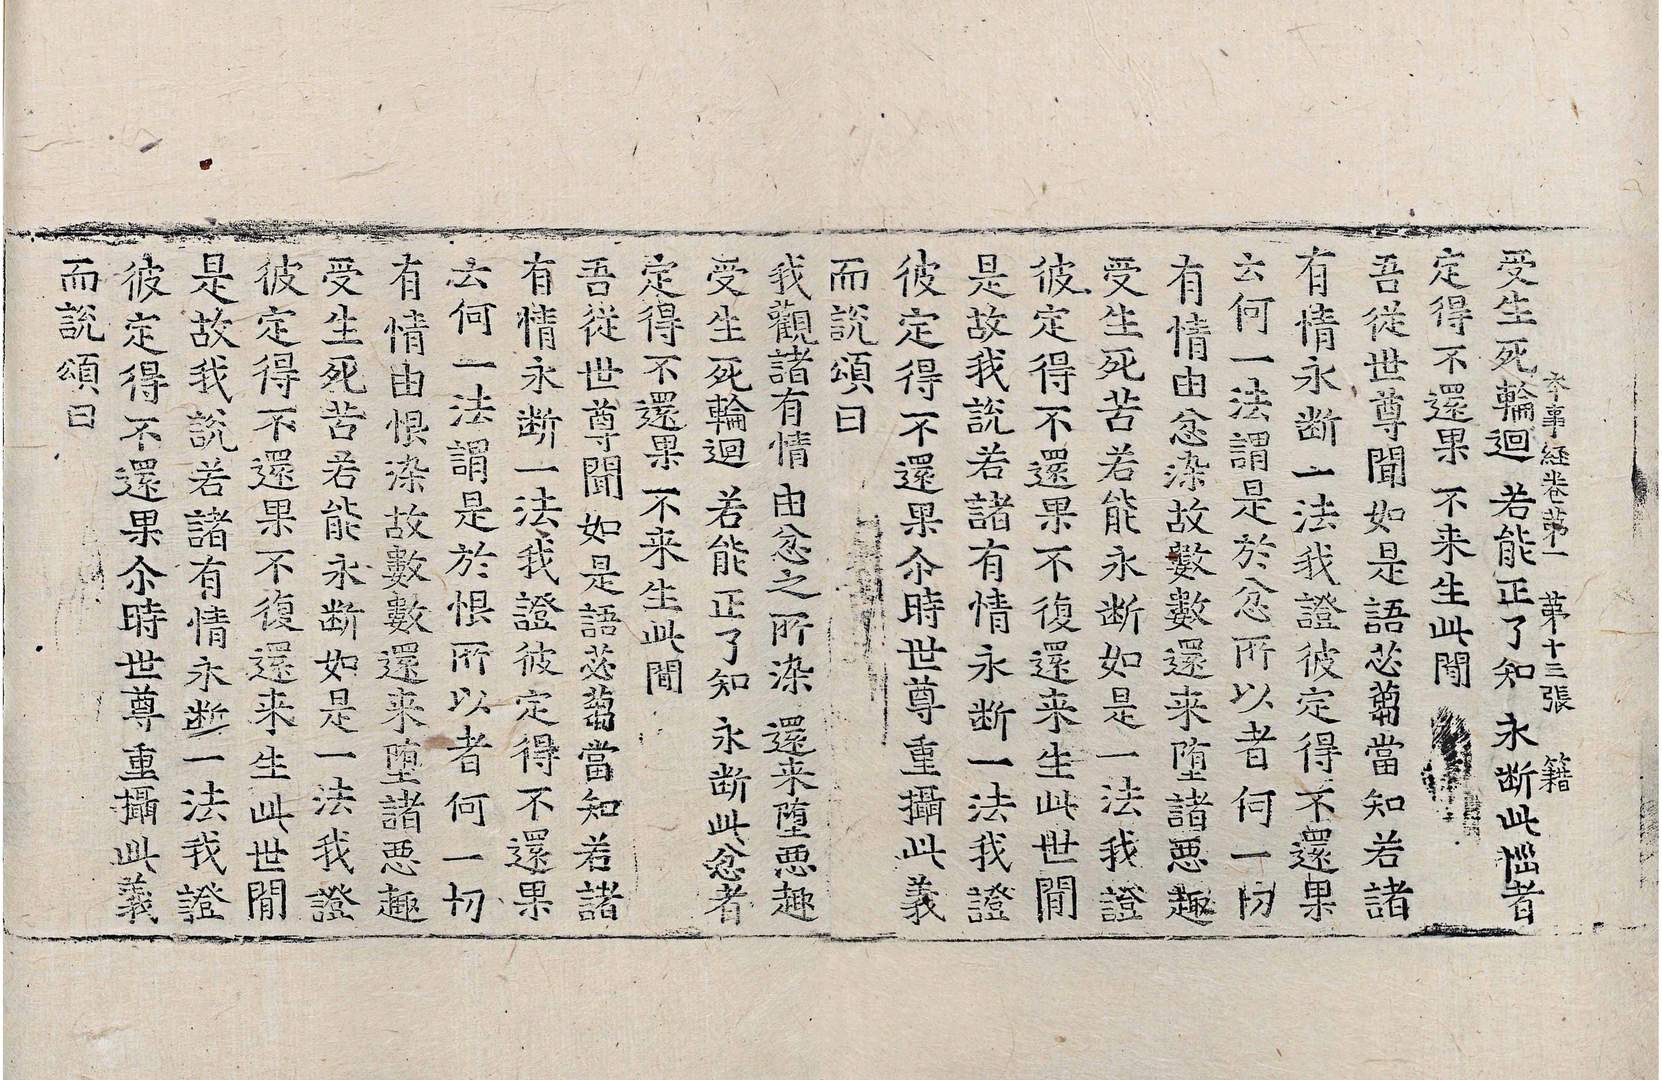 本事經卷第一　第十三張　籍
受生死輪迴　若能正了知　永断此惱者
定得不還果　不来生此閒
吾從世尊聞如是語苾蒭當知若諸
有情永断一法我證彼定得不還果
云何一法謂是於忿所以者何一切
有情由忿染故數數還来墮諸惡趣
受生死苦若能永断如是一法我證
彼定得不還果不復還来生此世閒
是故我説若諸有情永断一法我證
彼定得不還果尒時世尊重攝此義
而說頌曰
我觀諸有情　由忿之所染　還来墮惡趣
受生死輪迴　若能正了知　永断此忿者
定得不還果　不来生此閒
吾從世尊聞如是語苾蒭當知若諸
有情永断一法我證彼定得不還果
云何一法謂是於恨所以者何一切
有情由恨染故數數還来墮諸惡趣
受生死苦若能永断如是一法我證
彼定得不還果不復還来生此世閒
是故我説若諸有情永断一法我證
彼定得不還果尒時世尊重攝此義
而說頌曰